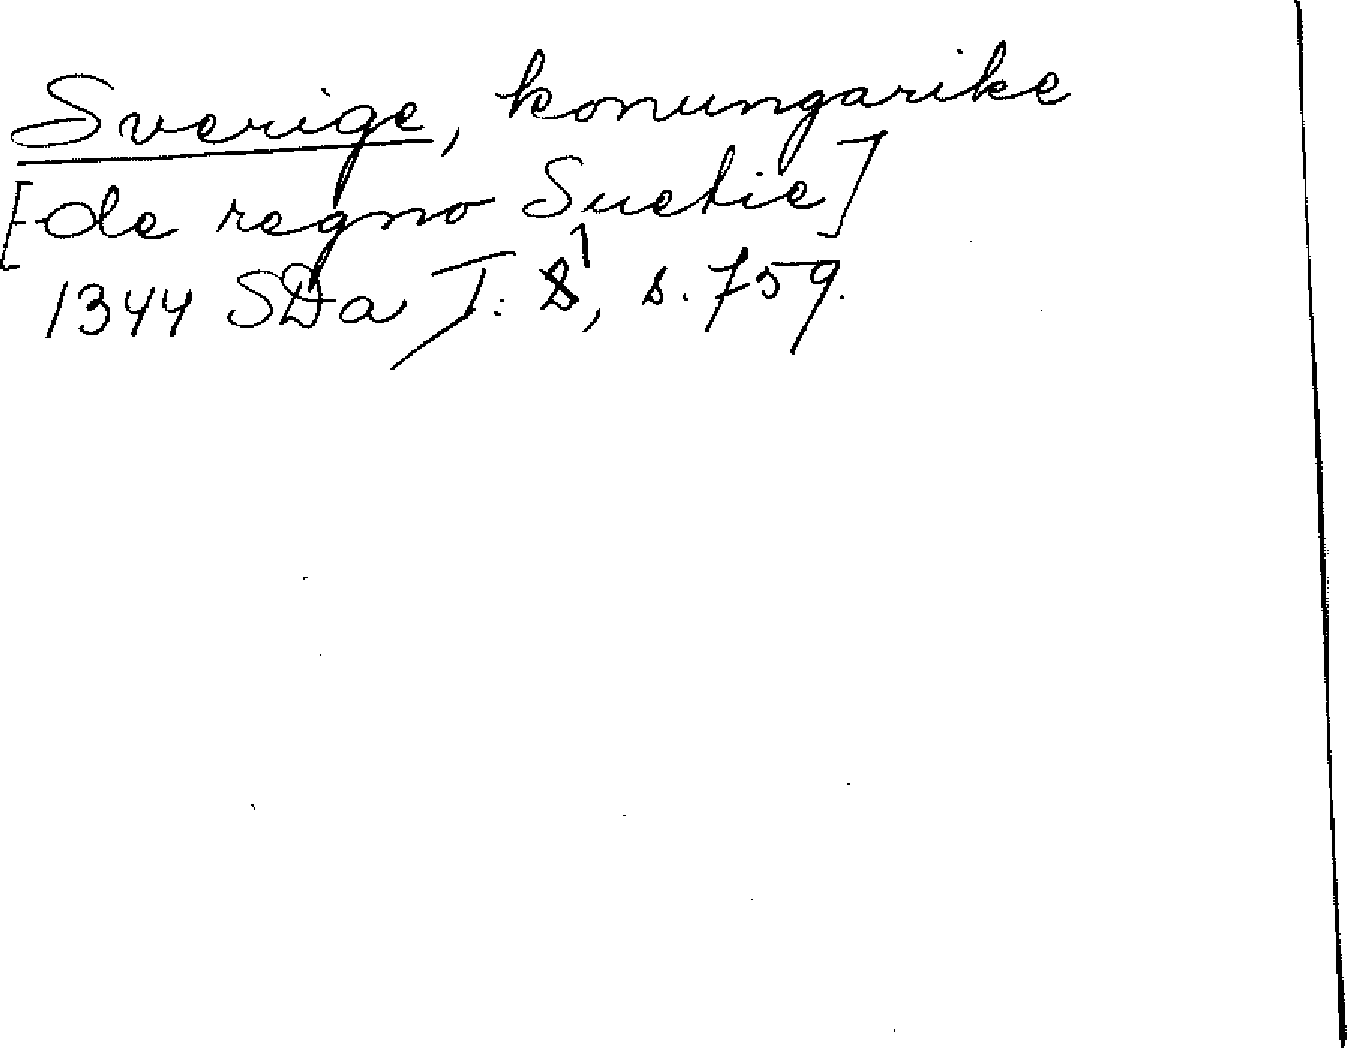 Sverige, konungarike
[de regno Suetie]
1344 SDa I: 1, s. 759.